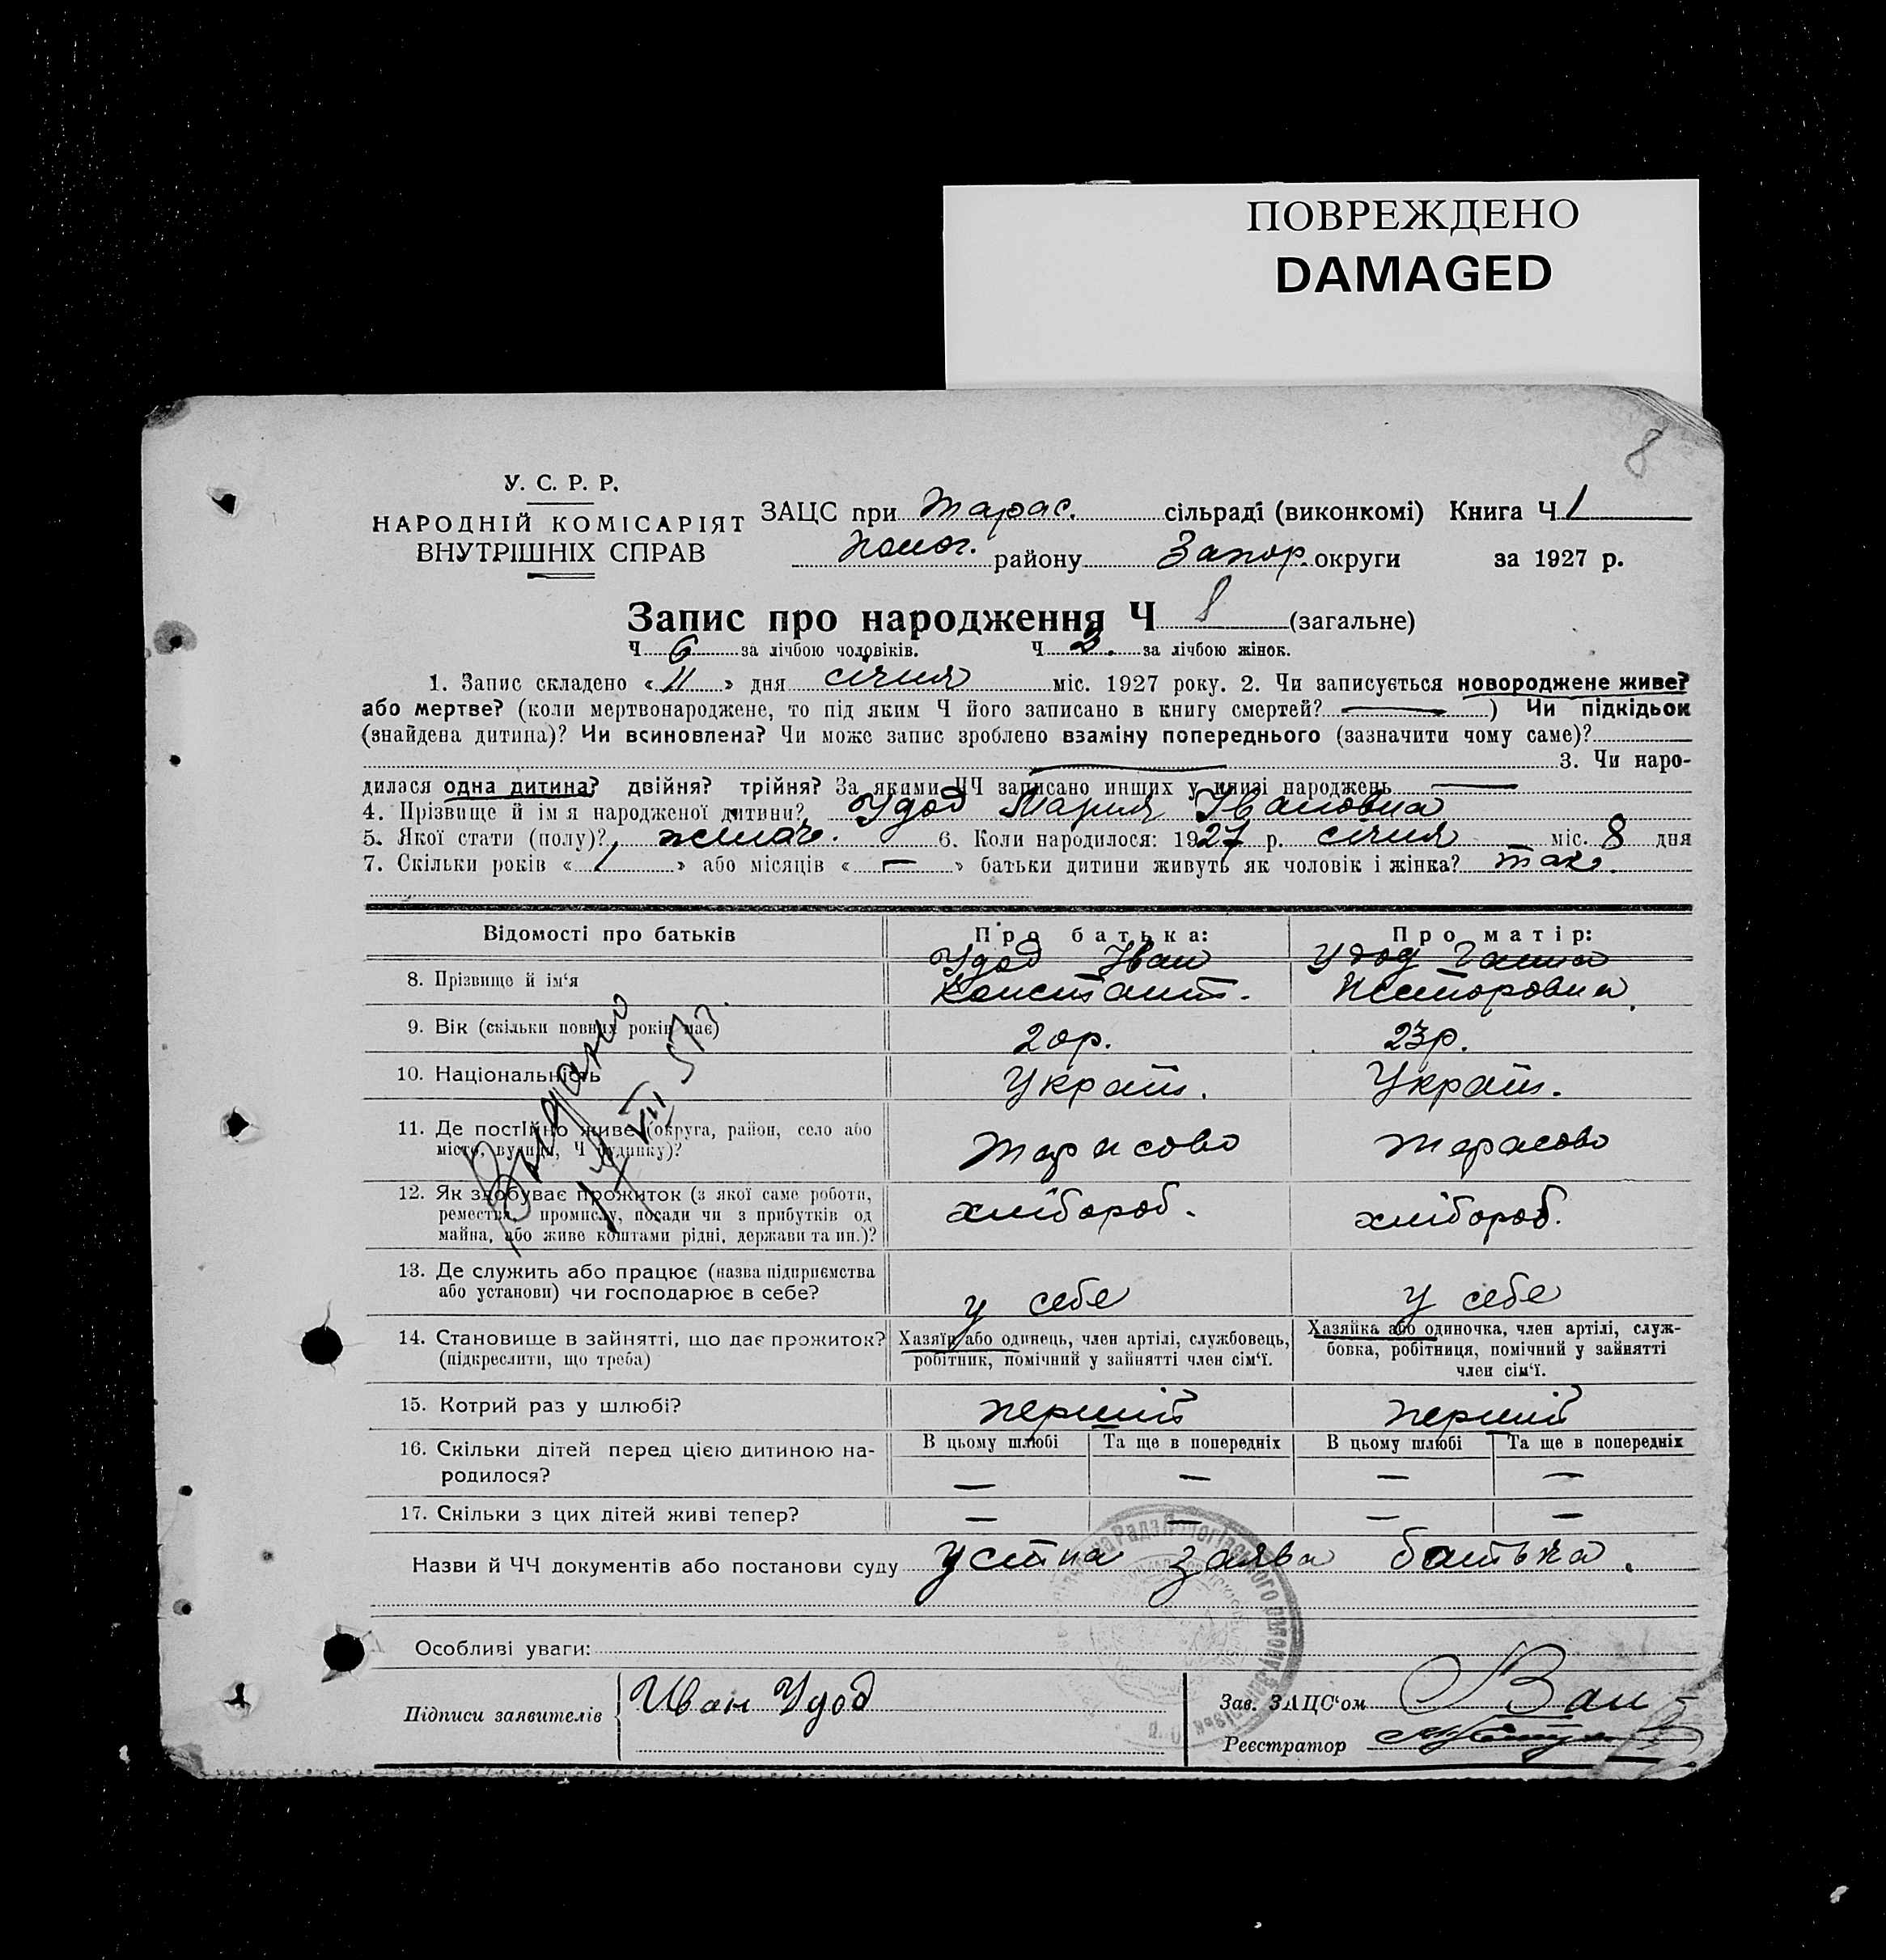 ПОВРЕЖДЕНО
DAMAGED
8
У. С. Р. Р.
НАРОДНІЙ КОМІСАРІЯТ
ВНУТРІШНІХ СПРАВ
ЗАЦС при Тарас. сільраді (виконкомі) Книга Ч 1
Полог. району Запор. округи за 1927 р.
Запис про народження Ч 8 (загальне)
Ч 6 за лічбою чоловіків. Ч 2. за лічбою жінок.
1. Запис складено « 11 » дня січня міс. 1927 року. 2. Чи записується новороджене живе?
або мертве? (коли мертвонароджене, то під яким Ч його записано в книгу смертей? —) Чи підкідьок
(знайдена дитина)? Чи всиновлена? Чи може запис зроблено взаміну попереднього (зазначити чому саме)?
— 3. Чи наро-
дилася одна дитина? двійня? трійня? За якими ЧЧ записано инших у книзі народжень —
4. Прізвище й ім'я народженої дитини? Удод Мария Івановна
5. Якої стати (полу)? жіноч. 6. Коли народилося: 1927 р. січня міс. 8 дня
7. Скільки років « 1 » або місяців « — » батьки дитини живуть як чоловік і жінка? так.
Відомості про батьків
Про батька:
Про матір:
8. Прізвище й ім'я
Удод Іван
Констант.
Удод Ганна
Несторовна
9. Вік (скільки повних років має)
20р.
23р.
10. Національність
Україн.
Україн.
11. Де постійно живе (округа, район, село або
місто, вулиця, Ч будинку)?
Тарасово
Тарасово
12. Як здобуває прожиток (з якої саме роботи,
ремества, промислу, посади чи з прибутків од
майна, або живе коштами рідні, держави та ин.)?
хлібороб.
хлібороб.
13. Де служить або працює (назва підприємства
або установи) чи господарює в себе?
у себе
у себе
14. Становище в зайнятті, що дає прожиток?
(підкреслити, що треба)
Хазяїн або одинець, член артілі, службовець,
робітник, помічний у зайнятті член сім'ї.
Хазяйка або одиночка, член артілі, служ-
бовка, робітниця, помічний у зайнятті
член сім'ї.
15. Котрий раз у шлюбі?
перший
перший
16. Скільки дітей перед цією дитиною на-
родилося?
В цьому шлюбі Та ще в попередніх В цьому шлюбі Та ще в попередніх
— — — —
17. Скільки з цих дітей живі тепер?
— — — —
Видано
VII
Назви й ЧЧ документів або постанови суду Устна заява батька.
Особливі уваги:
Підписи заявителів Иван Удод
Зав. ЗАЦС'ом
Реєстратор